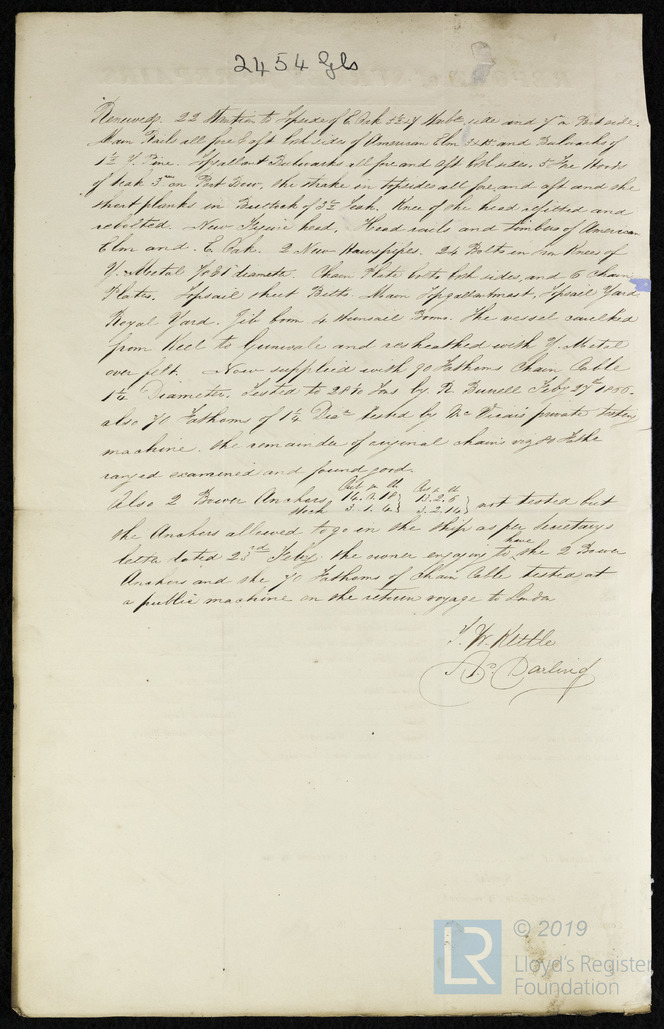 2454 Gls
Renewed. 22 Stantions Topside of E Oak side and 7 on Port side.
Main Rails all fore & aft both sides of American Elm and Bulwarks of
1½ Y. Pine. Topgallant Bulwarks all fore and aft both sides. 5 Fore Hoods
of teak 3 on Port Bow, the strake in topsides all fore and aft and the
short planks in of 3½ Teak. Knee of the head refitted and
rebolted. New Figure head. Head rails and timbers of American
Elm and E. Oak. 2 New Hawsepipes. 24 Bolts in Knees of
Y. Metal diameter. Chain Plate bolts both sides, and 6 Chain
Plates. Topsail sheet Bitts. Main Topgallantmast, Topsail Yard
Royal Yard. Jib boom 4 Stunsail Booms. The vessel caulked
from Keel to Gunwale and resheathed with Y. Metal
over felt. Now supplied with 90 Fathoms Chain Cable
1¼ Diameter. Tested to Tons by R Burrell Feby 27th
also 70 Fathoms of 1¼ Diar tested by Mr private testing
machine. the remainder of original chains viz 80 Faths
ranged examined and found good.
Cwt qr lb
Also 2 Bower Anchors 14.0.18 } 13.2.6 } not tested but
Stock 3.1.4 } 3.2.14 }
the Anchors allowed to go in the ship as per Secretarys
letter dated 23rd Feby. the owner engaging to have the 2 Bower
Anchors and the 70 Fathoms of Chain Cable tested at
a public machine on the return voyage to London
W. Kettle
Darling
LR © 2019
Lloyd's Register
Foundation